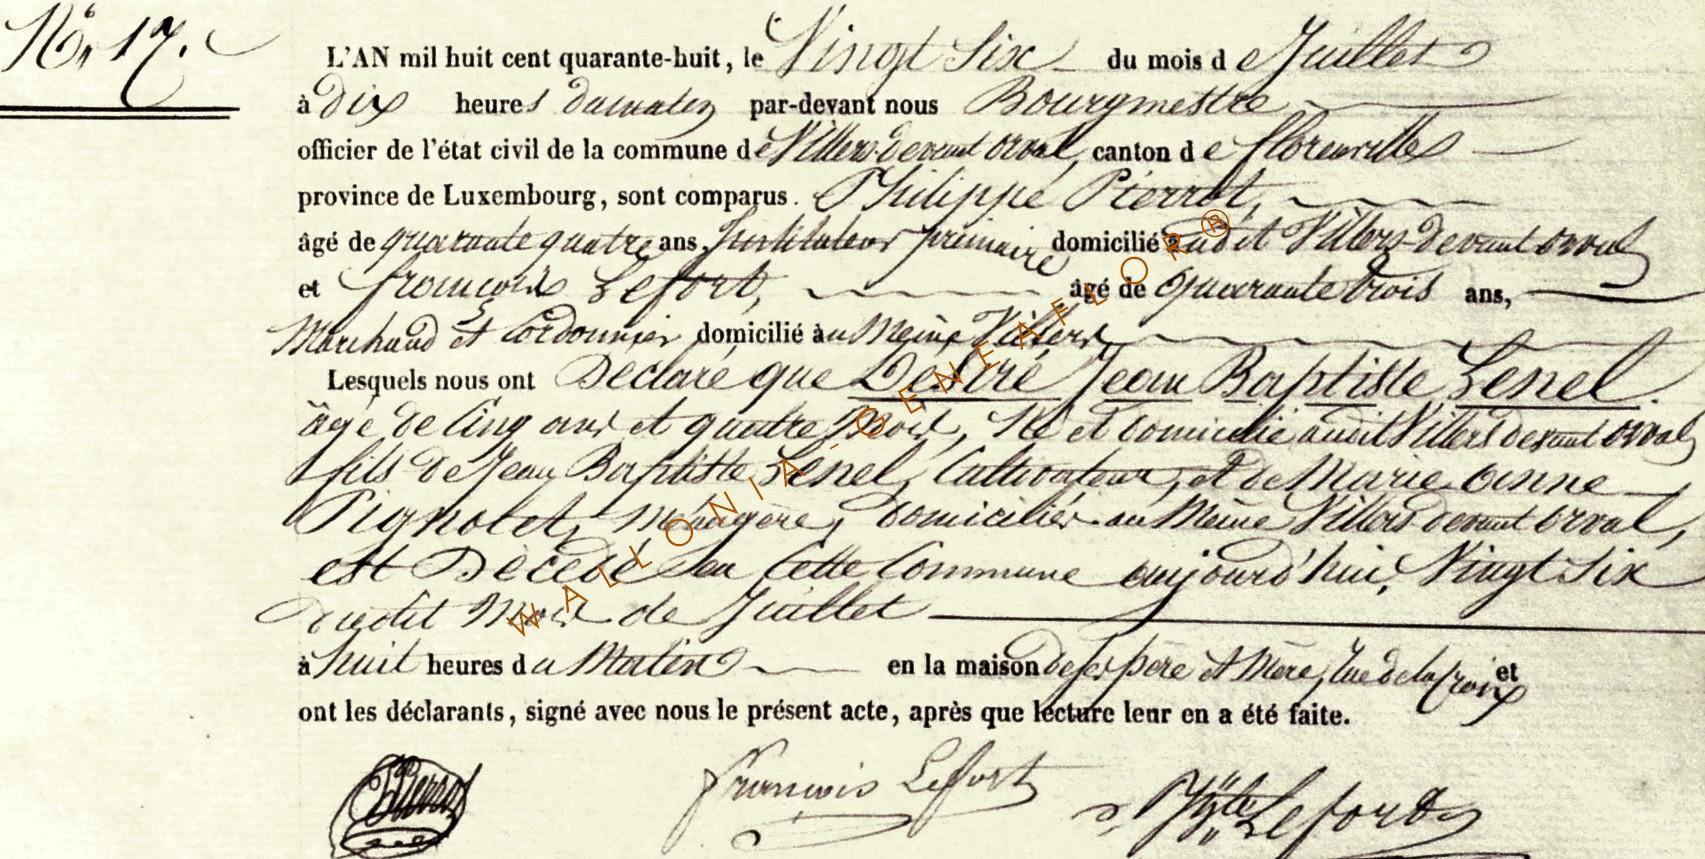 No. 17.
L'AN mil huit cent quarante-huit, le Vingt Six du mois de Juillet
à dix heures du matin par-devant nous Bourgmestre
officier de l'état civil de la commune de Villers-devant orval, canton de florenville
province de Luxembourg, sont comparus. Philippe Pierrot,
âgé de quarante quatre ans, Instituteur primaire domicilié audit Villers-devant orval
et françois Lefort, âgé de quarante trois ans,
Marchand et Cordonnier domicilié au Même Villers,
Lesquels nous ont Déclaré que Désiré Jean Baptiste Lenel.
âgé de Cinq ans et quatre Mois, Né et domicilié audit Villers devant orval,
fils de Jean Baptiste Lenel, Cultivateur, et de Marie anne
Pignolet, Ménagère, domiciliés au Même Villers devant orval,
est Décédé en Cette Commune aujourd'hui, Vingt Six
dudit Mois de Juillet
à huit heures du Matin en la maison de ses père et Mère, rue de la Croix et
ont les déclarants, signé avec nous le présent acte, après que lecture leur en a été faite.
Pierrot françois Lefort Hyte Lefort
WALLONIA-GENEAFLOR®